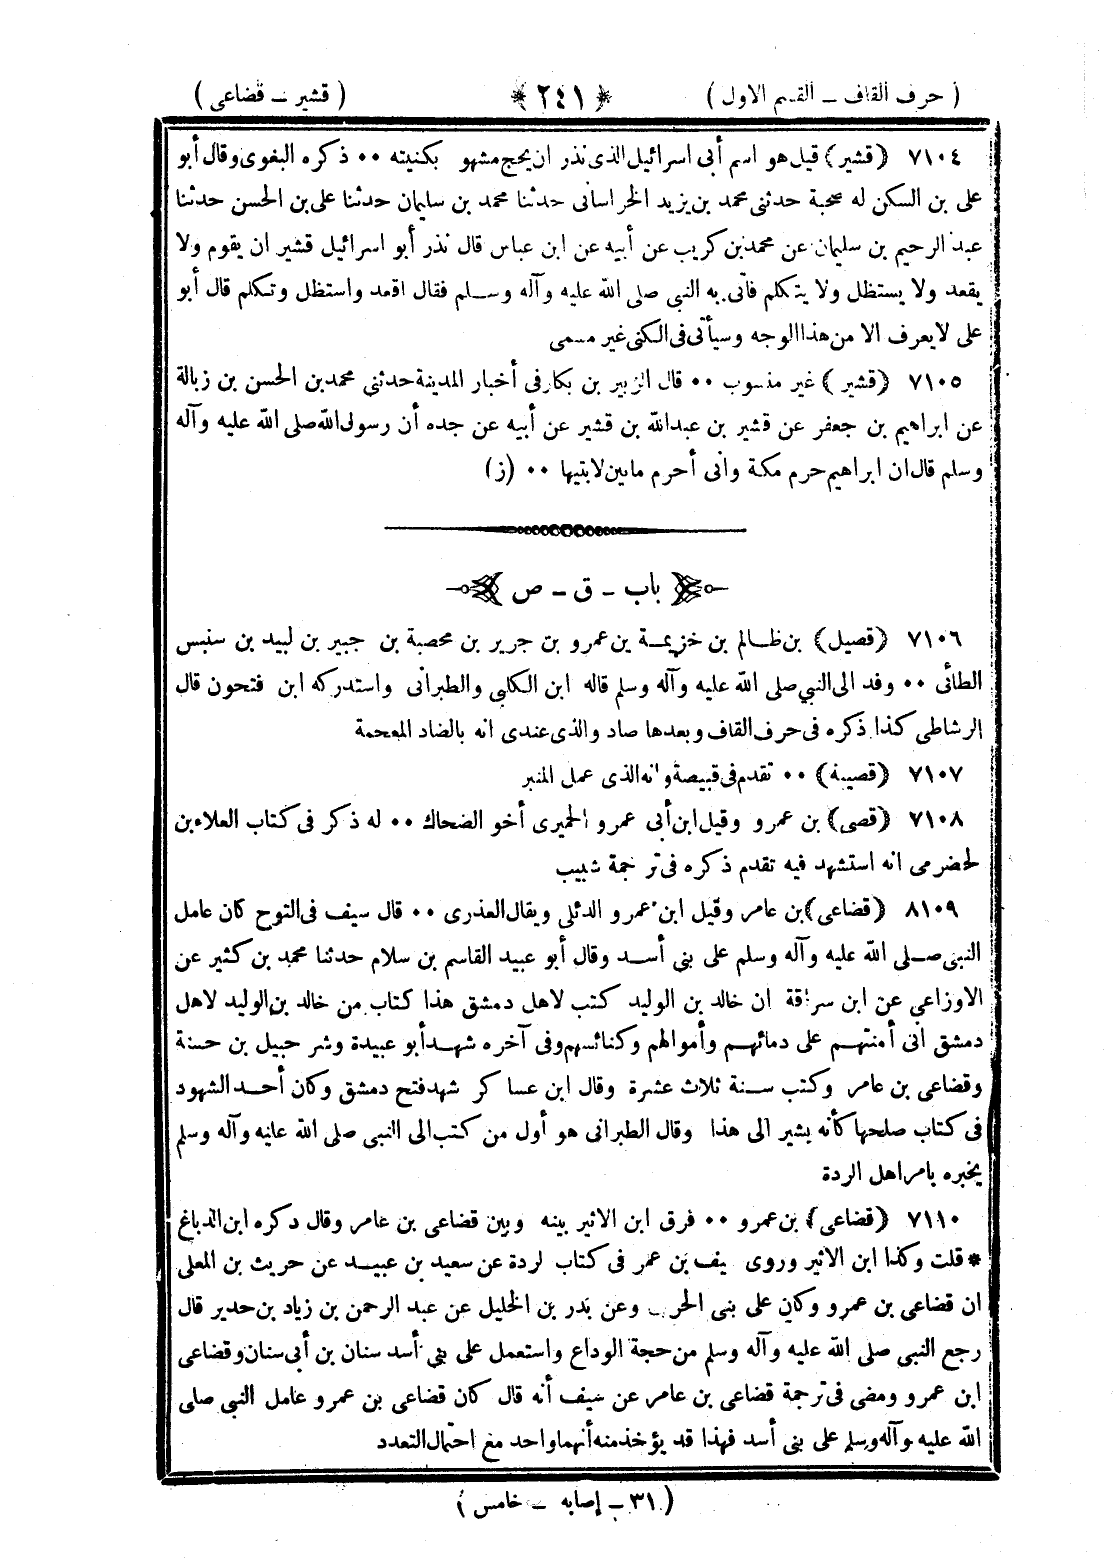 ( حرف القاف ــ القسم الاول ) ﴿ ٢٤١ ﴾ ( قشير ــ قضاعى )
٧١٠٤ (قشير) قيل هو اسم أبى اسرائيل الذى نذر ان يحج مشهو بكنيته ٠٠ ذكره البغوى وقال أبو
على بن السكن له صحبة حدثنى محمد بن يزيد الخراسانى حدثنا محمد بن سليمان حدثنا على بن الحسن حدثنا
عبد الرحيم بن سليمان عن محمد بن كريب عن أبيه عن ابن عباس قال نذر أبو اسرائيل قشير ان يقوم ولا
يقعد ولا يستظل ولا يتكلم فأتى به النبى صلى الله عليه وآله وسلم فقال اقعد واستظل وتكلم قال أبو
على لا يعرف الا من هذا الوجه وسيأتى فى الكنى غير مسمى
٧١٠٥ (قشير) غير منسوب ٠٠ قال الزبير بن بكار فى أخبار المدينة حدثنى محمد بن الحسن بن زبالة
عن ابراهيم بن جعفر عن قشير بن عبدالله بن قشير عن أبيه عن جده أن رسول الله صلى الله عليه وآله
وسلم قال ان ابراهيم حرم مكة وانى أحرم ما بين لابتيها ٠٠ (ز)
باب ـ ق ـ ص
٧١٠٦ (قصيل) بن ظالم بن خزيمة بن عمرو بن جرير بن محصبة بن جبير بن لبيد بن سنبس
الطائى ٠٠ وفد الى النبى صلى الله عليه وآله وسلم قاله ابن الكلبى والطبرانى واستدركه ابن فتحون قال
الرشاطى كذا ذكره فى حرف القاف وبعدها صاد والذى عندى انه بالضاد المعجمة
٧١٠٧ (قصيبة) ٠٠ تقدم فى قبيصة وانه الذى عمل المنبر
٧١٠٨ (قصى) بن عمرو وقيل ابن أبى عمرو الحميرى أخو الضحاك ٠٠ له ذكر فى كتاب العلاء بن
لحضرمى انه استشهد فيه تقدم ذكره فى ترجمة شبيب
٨١٠٩ (قضاعى) بن عامر وقيل ابن عمرو الدئلى ويقال العذرى ٠٠ قال سيف فى التوح كان عامل
النبى صلى الله عليه وآله وسلم على بنى أسد وقال أبو عبيد القاسم بن سلام حدثنا محمد بن كثير عن
الاوزاعى عن ابن سراقة ان خالد بن الوليد كتب لاهل دمشق هذا كتاب من خالد بن الوليد لاهل
دمشق انى أمنتهم على دمائهم وأموالهم وكنائسهم وفى آخره شهد أبو عبيدة وشرحبيل بن حسنة
وقضاعى بن عامر وكتب سنة ثلاث عشرة وقال ابن عساكر شهد فتح دمشق وكان أحد الشهود
فى كتاب صلحها كأنه يشير الى هذا وقال الطبرانى هو أول من كتب الى النبى صلى الله عليه وآله وسلم
يخبره بامر اهل الردة
٧١١٠ (قضاعى) بن عمرو ٠٠ فرق ابن الاثير بينه وبين قضاعى بن عامر وقال دكره ابن الدباغ
* قلت وكذا ابن الاثير وروى يف بن عمر فى كتاب لردة عن سعيد بن عبيد عن حريث بن المعلى
ان قضاعى بن عمرو وكان على بنى الحرب وعن بدر بن الخليل عن عبد الرحمن بن زياد بن حدير قال
رجع النبى صلى الله عليه وآله وسلم من حجة الوداع واستعمل على بنى أسد سنان بن أبى سنان وقضاعى
ابن عمرو ومضى فى ترجمة قضاعى بن عامر عن سيف أنه قال كان قضاعى بن عمرو عامل النبى صلى
الله عليه وآله وسلم على بنى أسد فهذا قد يؤخذ منه أنهما واحد مع احتمال التعدد
( ٣١ ــ إصابه ــ خامس )